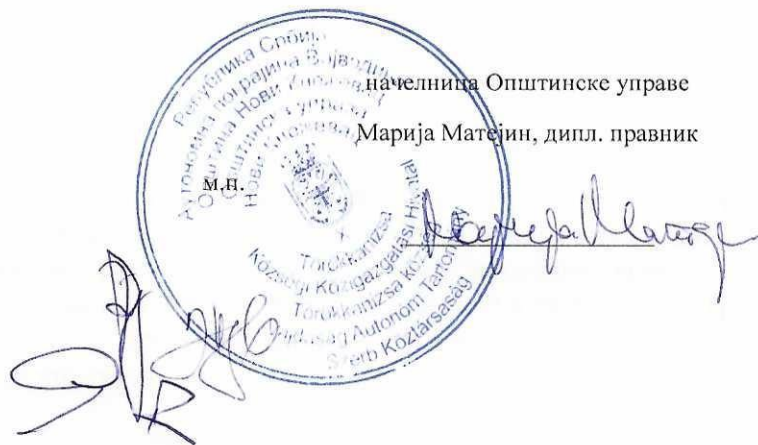 начелница Општинске управе
Марија Матејин, дипл. правник
м.п.
Република Србија
Аутономна покрајина Војводина
Општина Нови Кнежевац
Општинска управа
Нови Кнежевац
Törökkanizsa
Községi Közigazgatási Hivatal
Törökkanizsa község
Vajdaság Autonóm Tartomány
Szerb Köztársaság
Марија Матејин